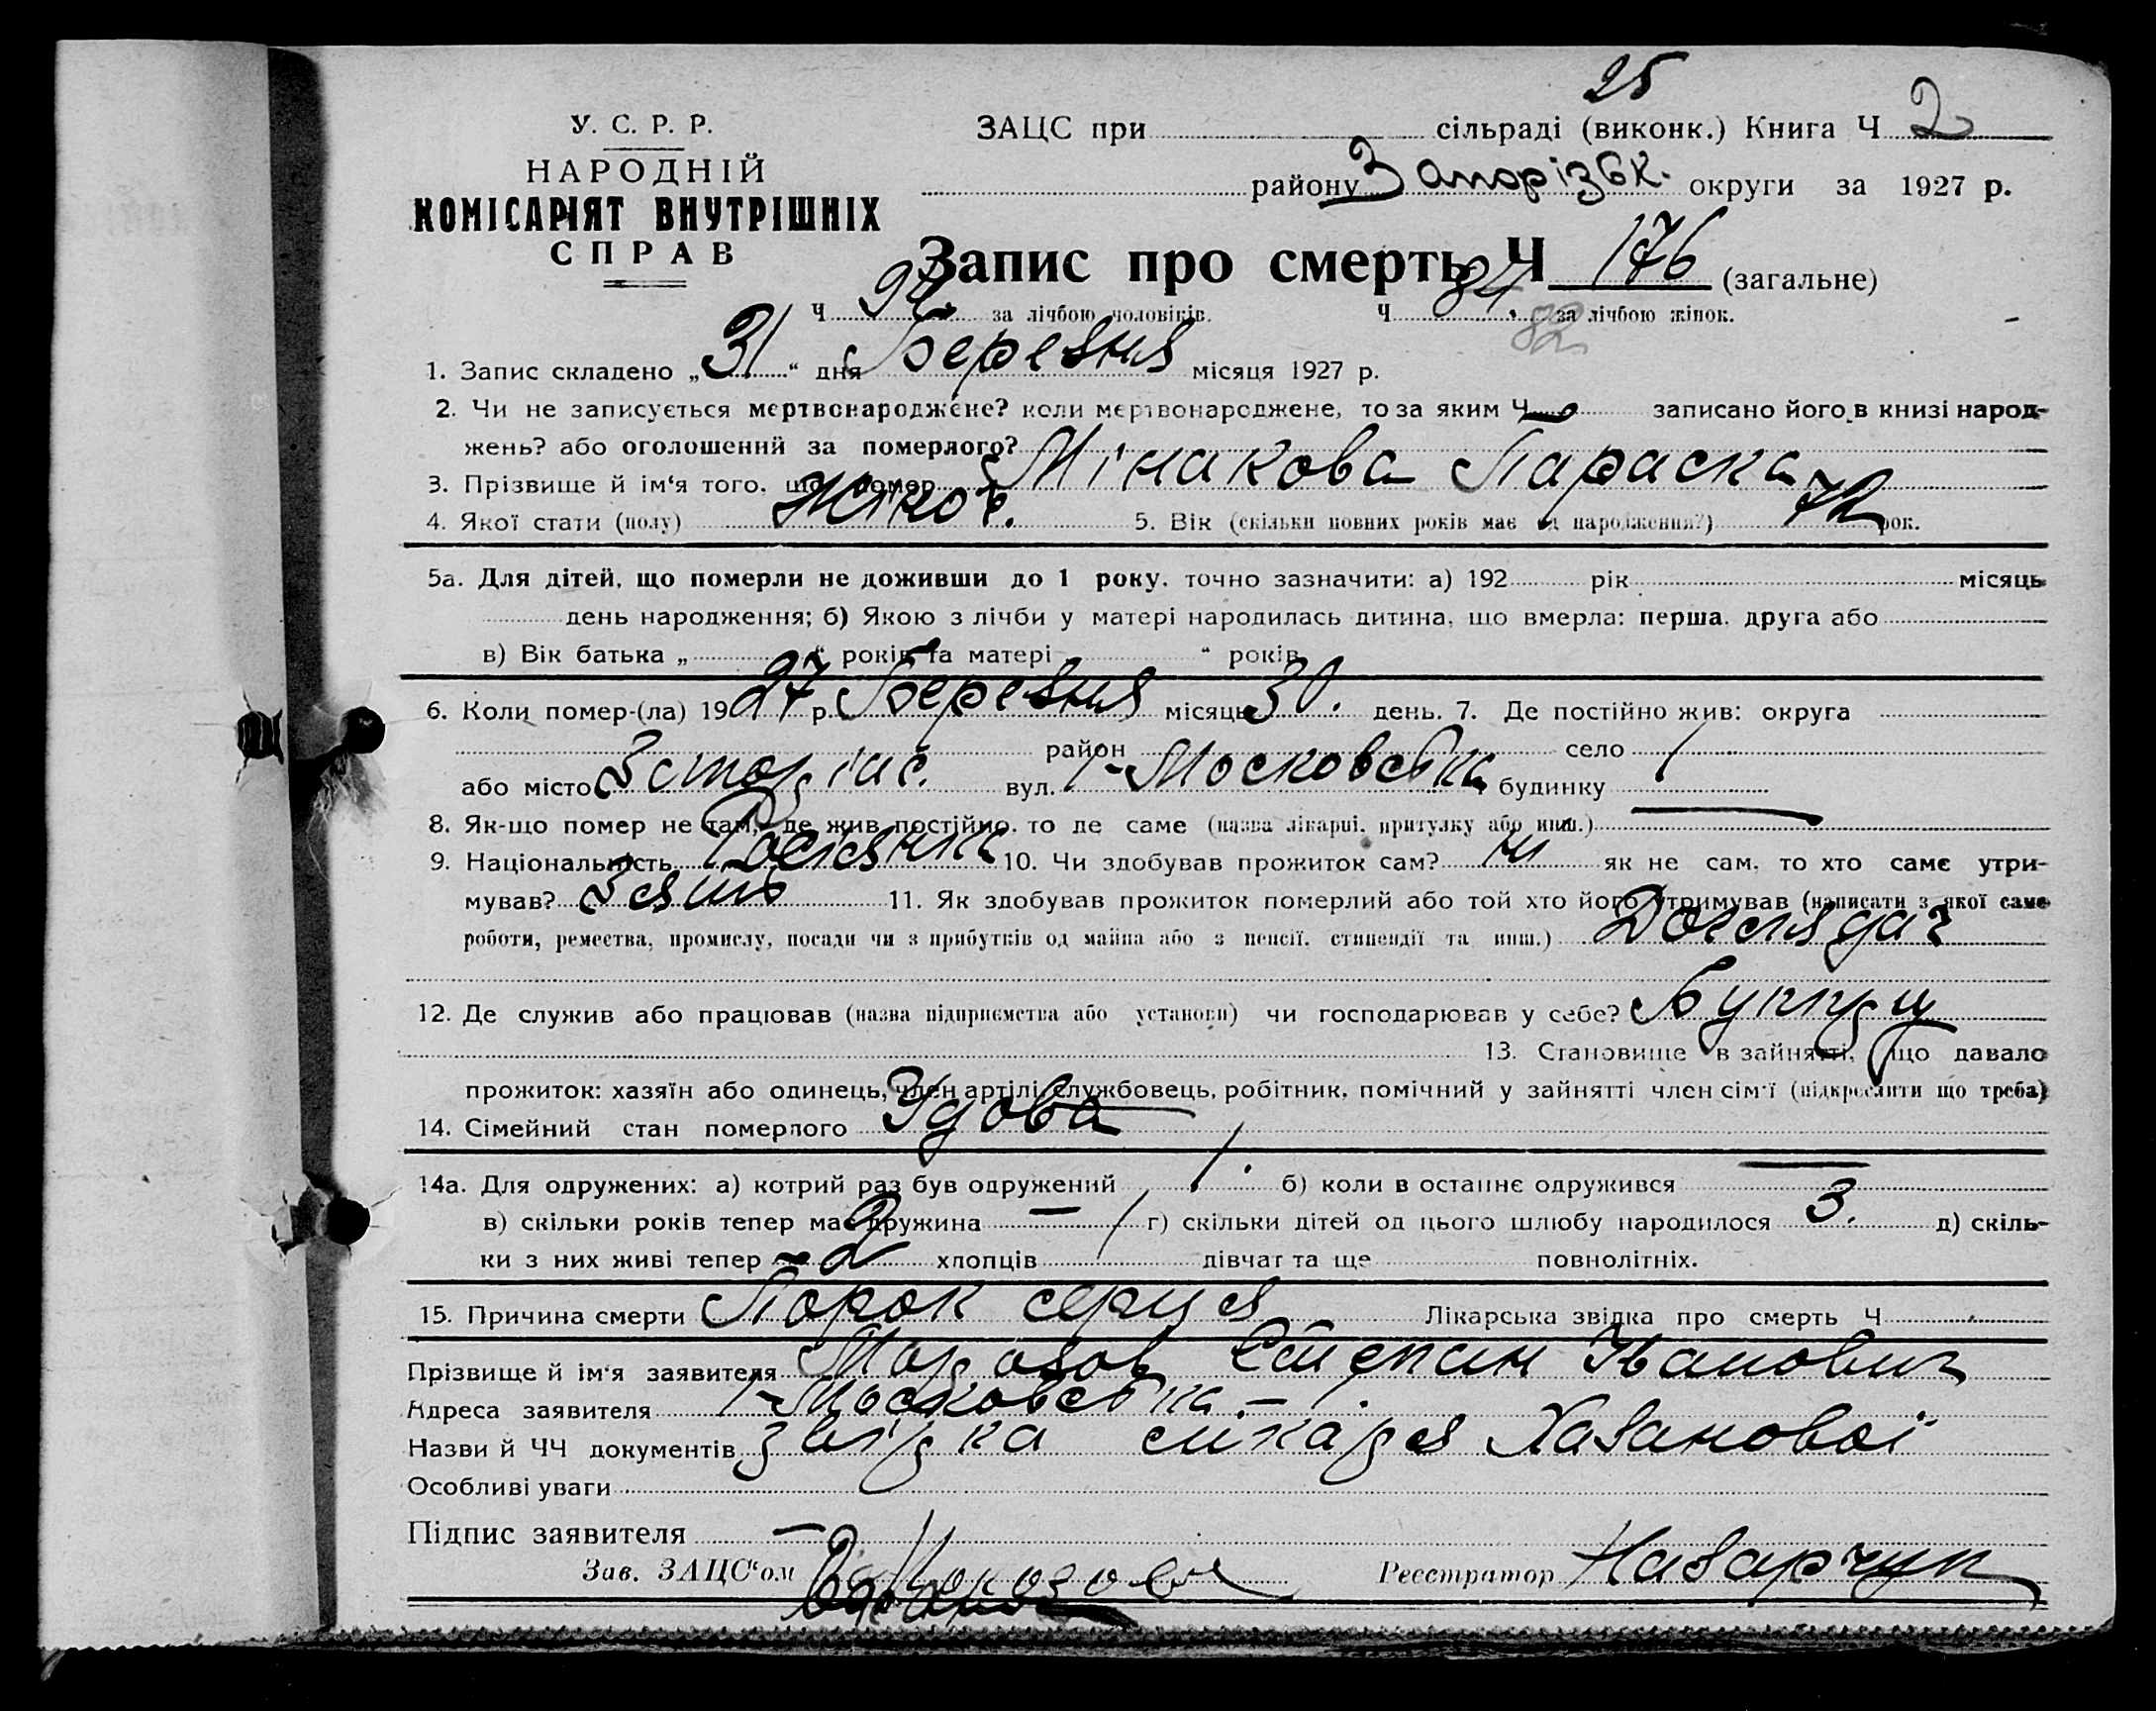 25
У. С. Р. Р.
НАРОДНІЙ
КОМІСАРІЯТ ВНУТРІШНІХ
СПРАВ
ЗАЦС при сільраді (виконк.) Книга Ч 2
району Запорізьк. округи за 1927 р.
Запис про смерть Ч 176 (загальне)
Ч 92 за лічбою чоловіків. Ч 84 за лічбою жінок.
82
1. Запис складено „31“ дня Березня місяця 1927 р.
2. Чи не записується мертвонароджене? коли мертвонароджене, то за яким Ч записано його в книзі народ-
жень? або оголошений за померлого?
3. Прізвище й ім‘я того, що помер Мінакова Параска
4. Якої стати (полу) Жіноч. 5. Вік (скільки повних років має од народження?) 72 рок.
5а. Для дітей, що померли не доживши до 1 року, точно зазначити: а) 192 рік місяць
день народження; б) Якою з лічби у матері народилась дитина, що вмерла: перша, друга або
в) Вік батька „ “ років та матері “ років
6. Коли помер-(ла) 1927 р. Березня місяць 30. день. 7. Де постійно жив: округа
район село
або місто вул. 1-Московська будинку
8. Як-що помер не там, де жив постійно, то де саме (назва лікарні, притулку або инш.)
9. Національність Росіянка 10. Чи здобував прожиток сам? ні як не сам, то хто саме утри-
мував? Зять 11. Як здобував прожиток померлий або той хто його утримував (написати з якої саме
роботи, ремества, промислу, посади чи з прибутків од майна або з пенсії, стипендії та инш.) Доглядач
12. Де служив або працював (назва підприємства або установи) чи господарював у себе?
13. Становище в зайнятті, що давало
прожиток: хазяїн або одинець, член артілі, службовець, робітник, помічний у зайнятті член сім‘ї (підкреслити що треба)
14. Сімейний стан померлого Удова
14а. Для одружених: а) котрий раз був одружений 1. б) коли в останнє одружився —
в) скільки років тепер має дружина — г) скільки дітей од цього шлюбу народилося 3. д) скіль-
ки з них живі тепер 2 хлопців дівчат та ще повнолітніх.
15. Причина смерти Порок серця Лікарська звідка про смерть Ч
Прізвище й ім‘я заявителя Морозов Степан Іванович
Адреса заявителя 1-Московська – 1.
Назви й ЧЧ документів звідка лікаря Хазанової
Особливі уваги
Підпис заявителя —
Зав. ЗАЦС‘ом Реєстратор Назарчук